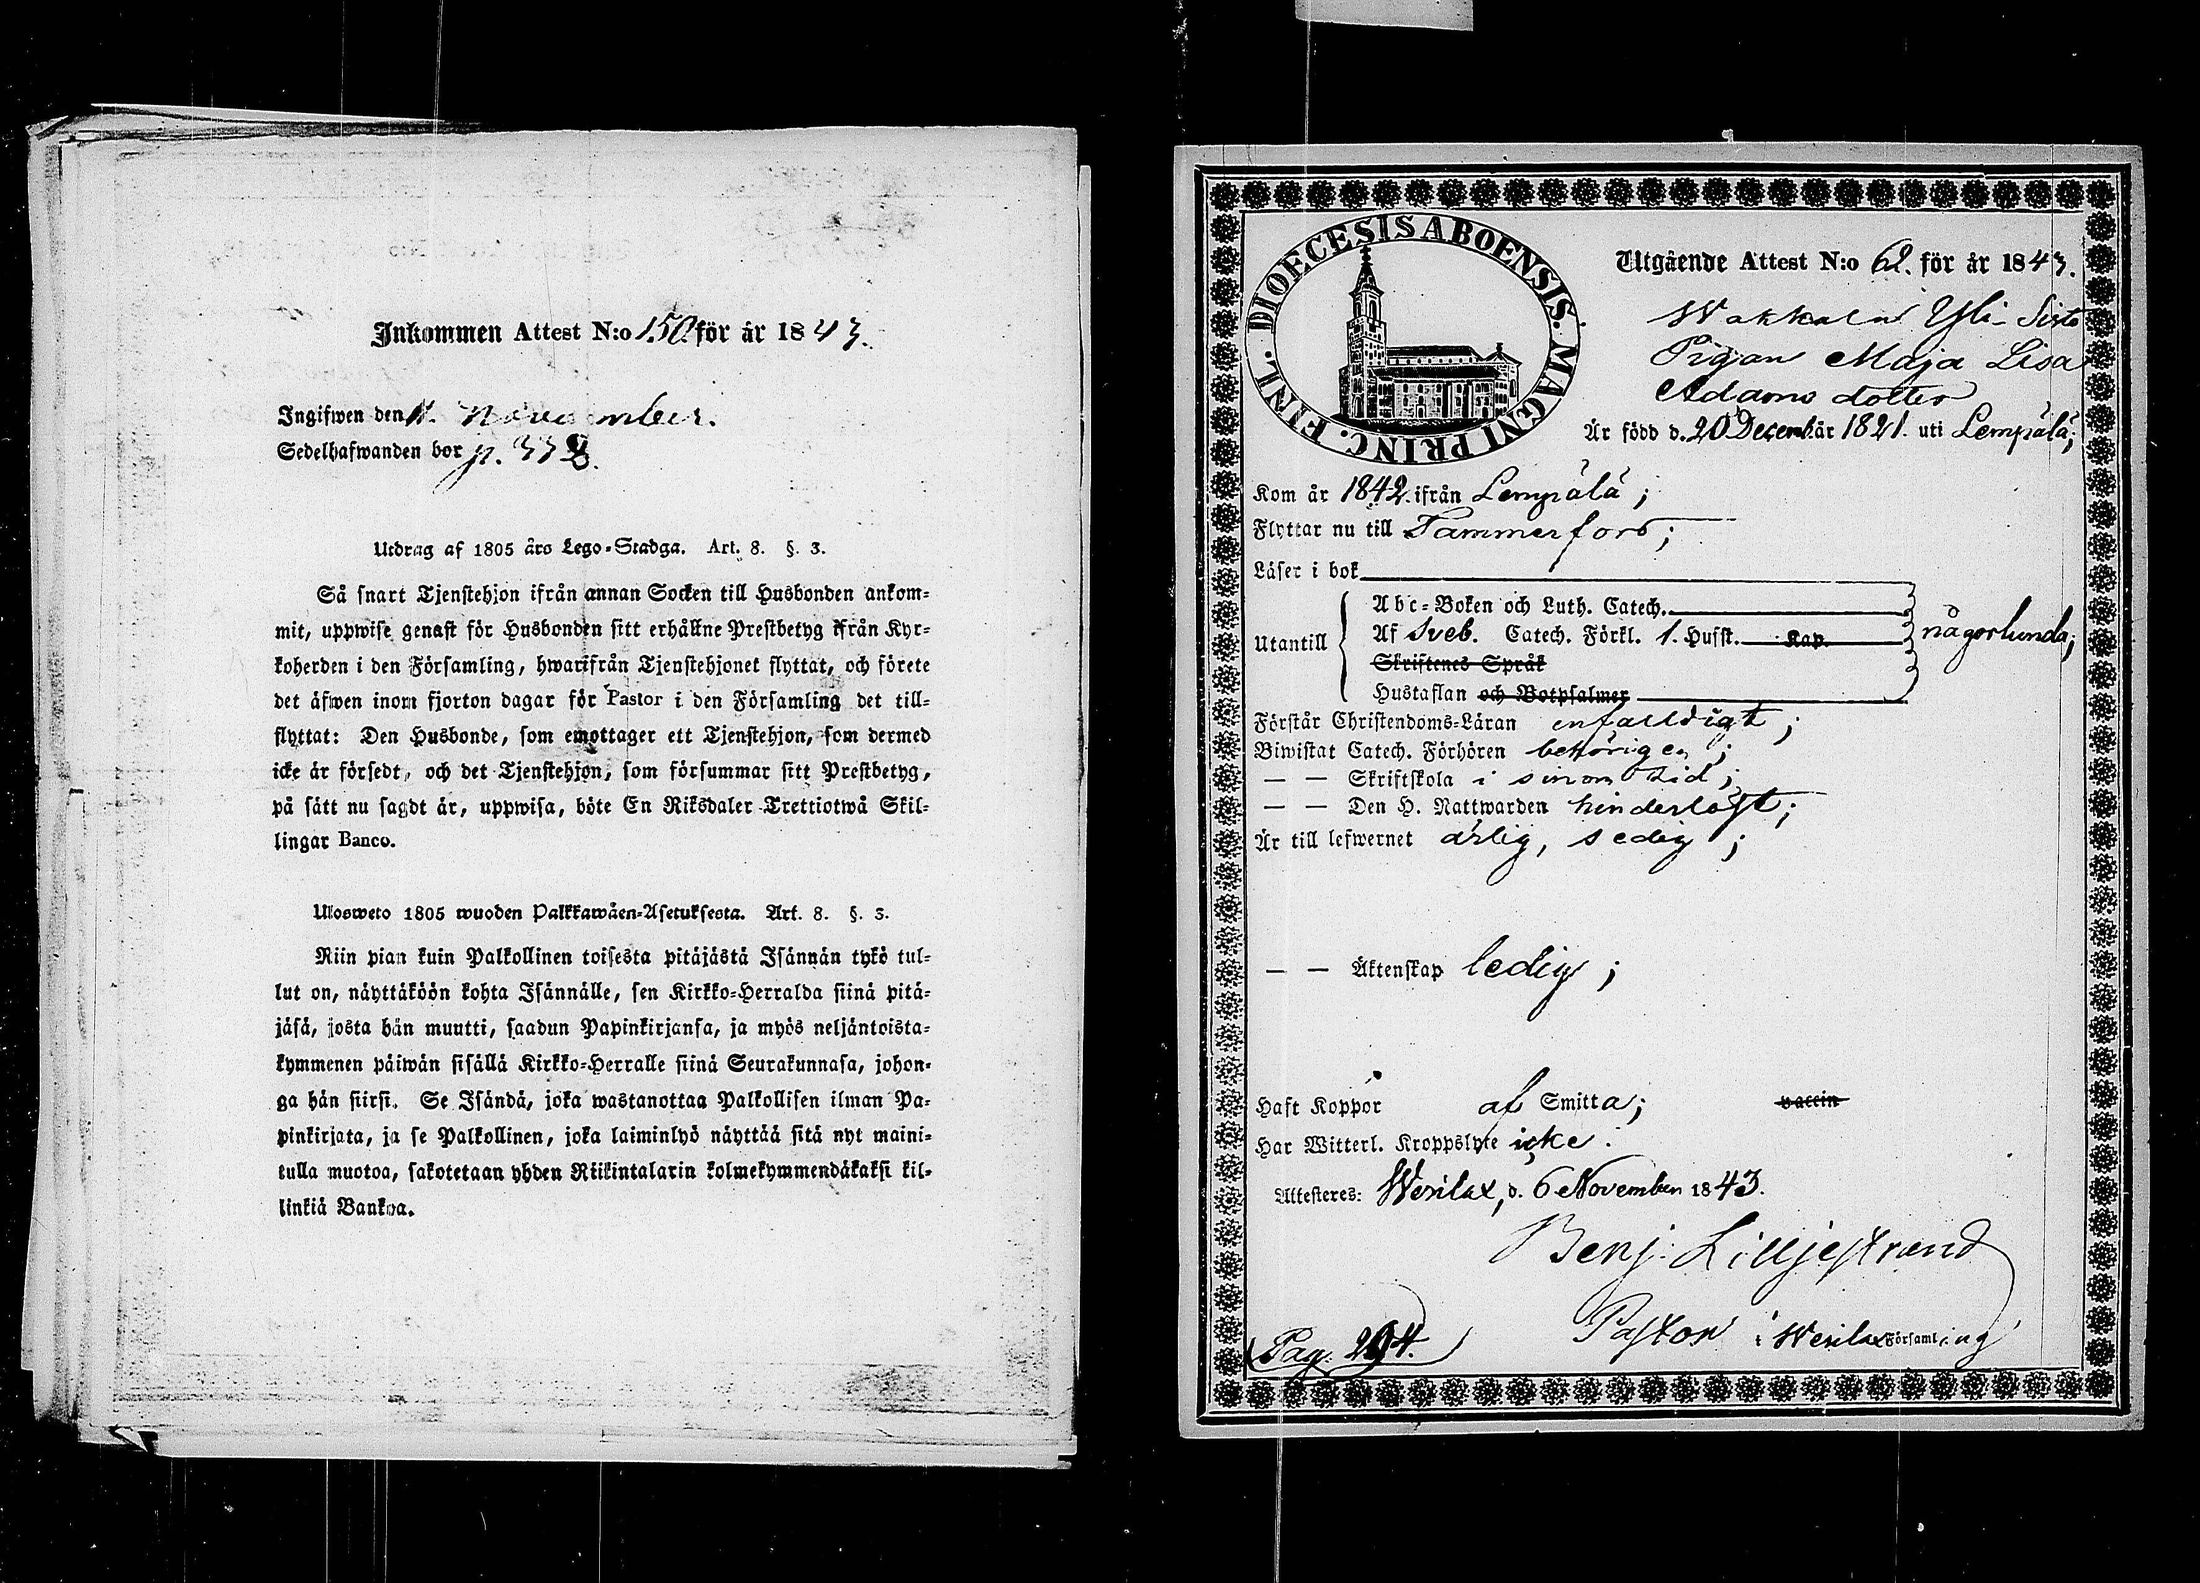 Inkommen Attest N:o 150. för år 1843.
Ingifwen den 11. November.
Sedelhafwanden bor p. 338.
Utdrag af 1805 års Lego-Stadga. Art. 8. §. 3.
Så snart Tjenstehjon ifrån annan Socken till Husbonden ankom-
mit, uppwise genast för Husbonden sitt erhållne Prestbetyg ifrån Kyr-
koherden i den Församling, hwarifrån Tjenstehjonet flyttat, och förete
det äfwen inom fjorton dagar för Pastor i den Församling det till-
flyttat: Den Husbonde, som emottager ett Tjenstehjon, som dermed
icke är försedt, och det Tjenstehjon, som försummar sitt Prestbetyg,
på sätt nu sagdt är, uppwisa, böte En Riksdaler Trettiotwå Skil-
lingar Banco.
Ulosweto 1805 wuoden Palkkawäen-Asetuksesta. Art. 8. §. 3.
Niin pian kuin Palkollinen toisesta pitäjästä Isännän tykö tul-
lut on, näyttäköön kohta Isännälle, sen Kirkko-Herralda siinä pitä-
jäsä, josta hän muutti, saadun Papinkirjansa, ja myös neljäntoista-
kymmenen päiwän sisällä Kirkko-Herralle siinä Seurakunnasa, johon-
ga hän siirsi. Se Isändä, joka wastanottaa Palkollisen ilman Pa-
pinkirjata, ja se Palkollinen, joka laiminlyö näyttää sitä nyt maini-
tulla muotoa, sakotetaan yhden Riikintalarin kolmekymmendäkaksi kil-
linkiä Bankoa.
DIOECESIS ABOENSIS. MAGNI PRINC. FINL.
Utgående Attest N:o 62. för år 1843.
Wakkala Yli-Sisto
Pigan Maja Lisa
Adams dotter
Är född d. 20 Decemb. år 1821. uti Lempälä;
Kom år 1842. ifrån Lempälä;
Flyttar nu till Tammerfors;
Läser i bok
Utantill
Abc-Boken och Luth. Catech.
Af Sveb. Catech. Förkl. 1. Hufst. Kap.
Skriftenes Språk
Hustaflan och Botpsalmer
någorlunda;
Förstår Christendoms-Läran enfalldigt;
Biwistat Catech. Förhören behörigen;
— — Skriftskola i sinom tid;
— — Den H. Nattwarden hinderlöst;
Är till lefwernet ärlig, sedig;
— — Äktenskap ledig;
Haft Koppor af Smitta; vaccin
Har Witterl. Kroppslyte icke.
Attesteres: Wesilax, d. 6 November 1843.
Benj. Lilljestrand
Pastor i Wesilax Församling
Pag: 294.